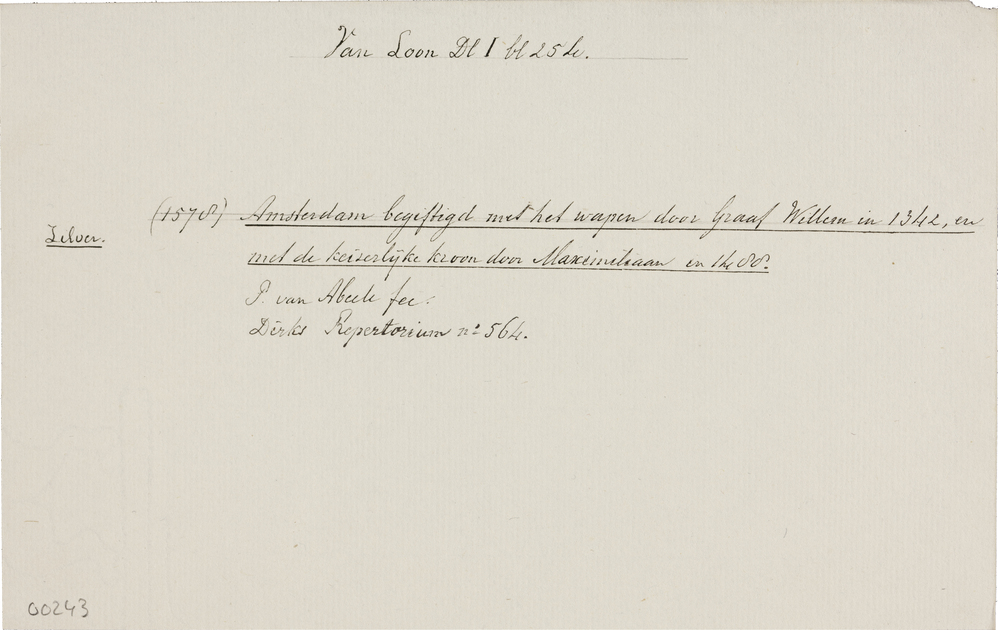 Van Loon Dl I bl 254.
(1578) Amsterdam begiftigd met het wapen door Graaf Willem in 1342, en
Zilver.
met de keizerlijke kroon door Maximiliaan en 1488.
P. van Abeele fec:
Dirks Repertorium no 564.
00243